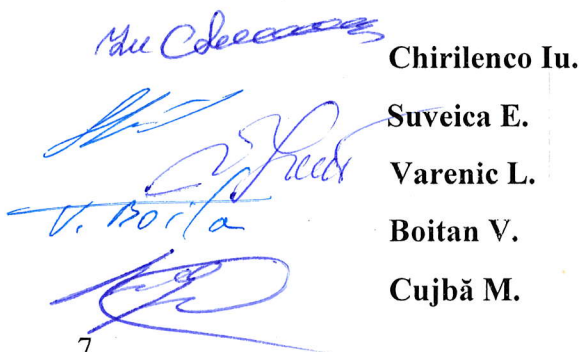 Chirilenco Iu.
Suveica E.
Varenic L.
V. Boita Boitan V.
Cujbă M.
7